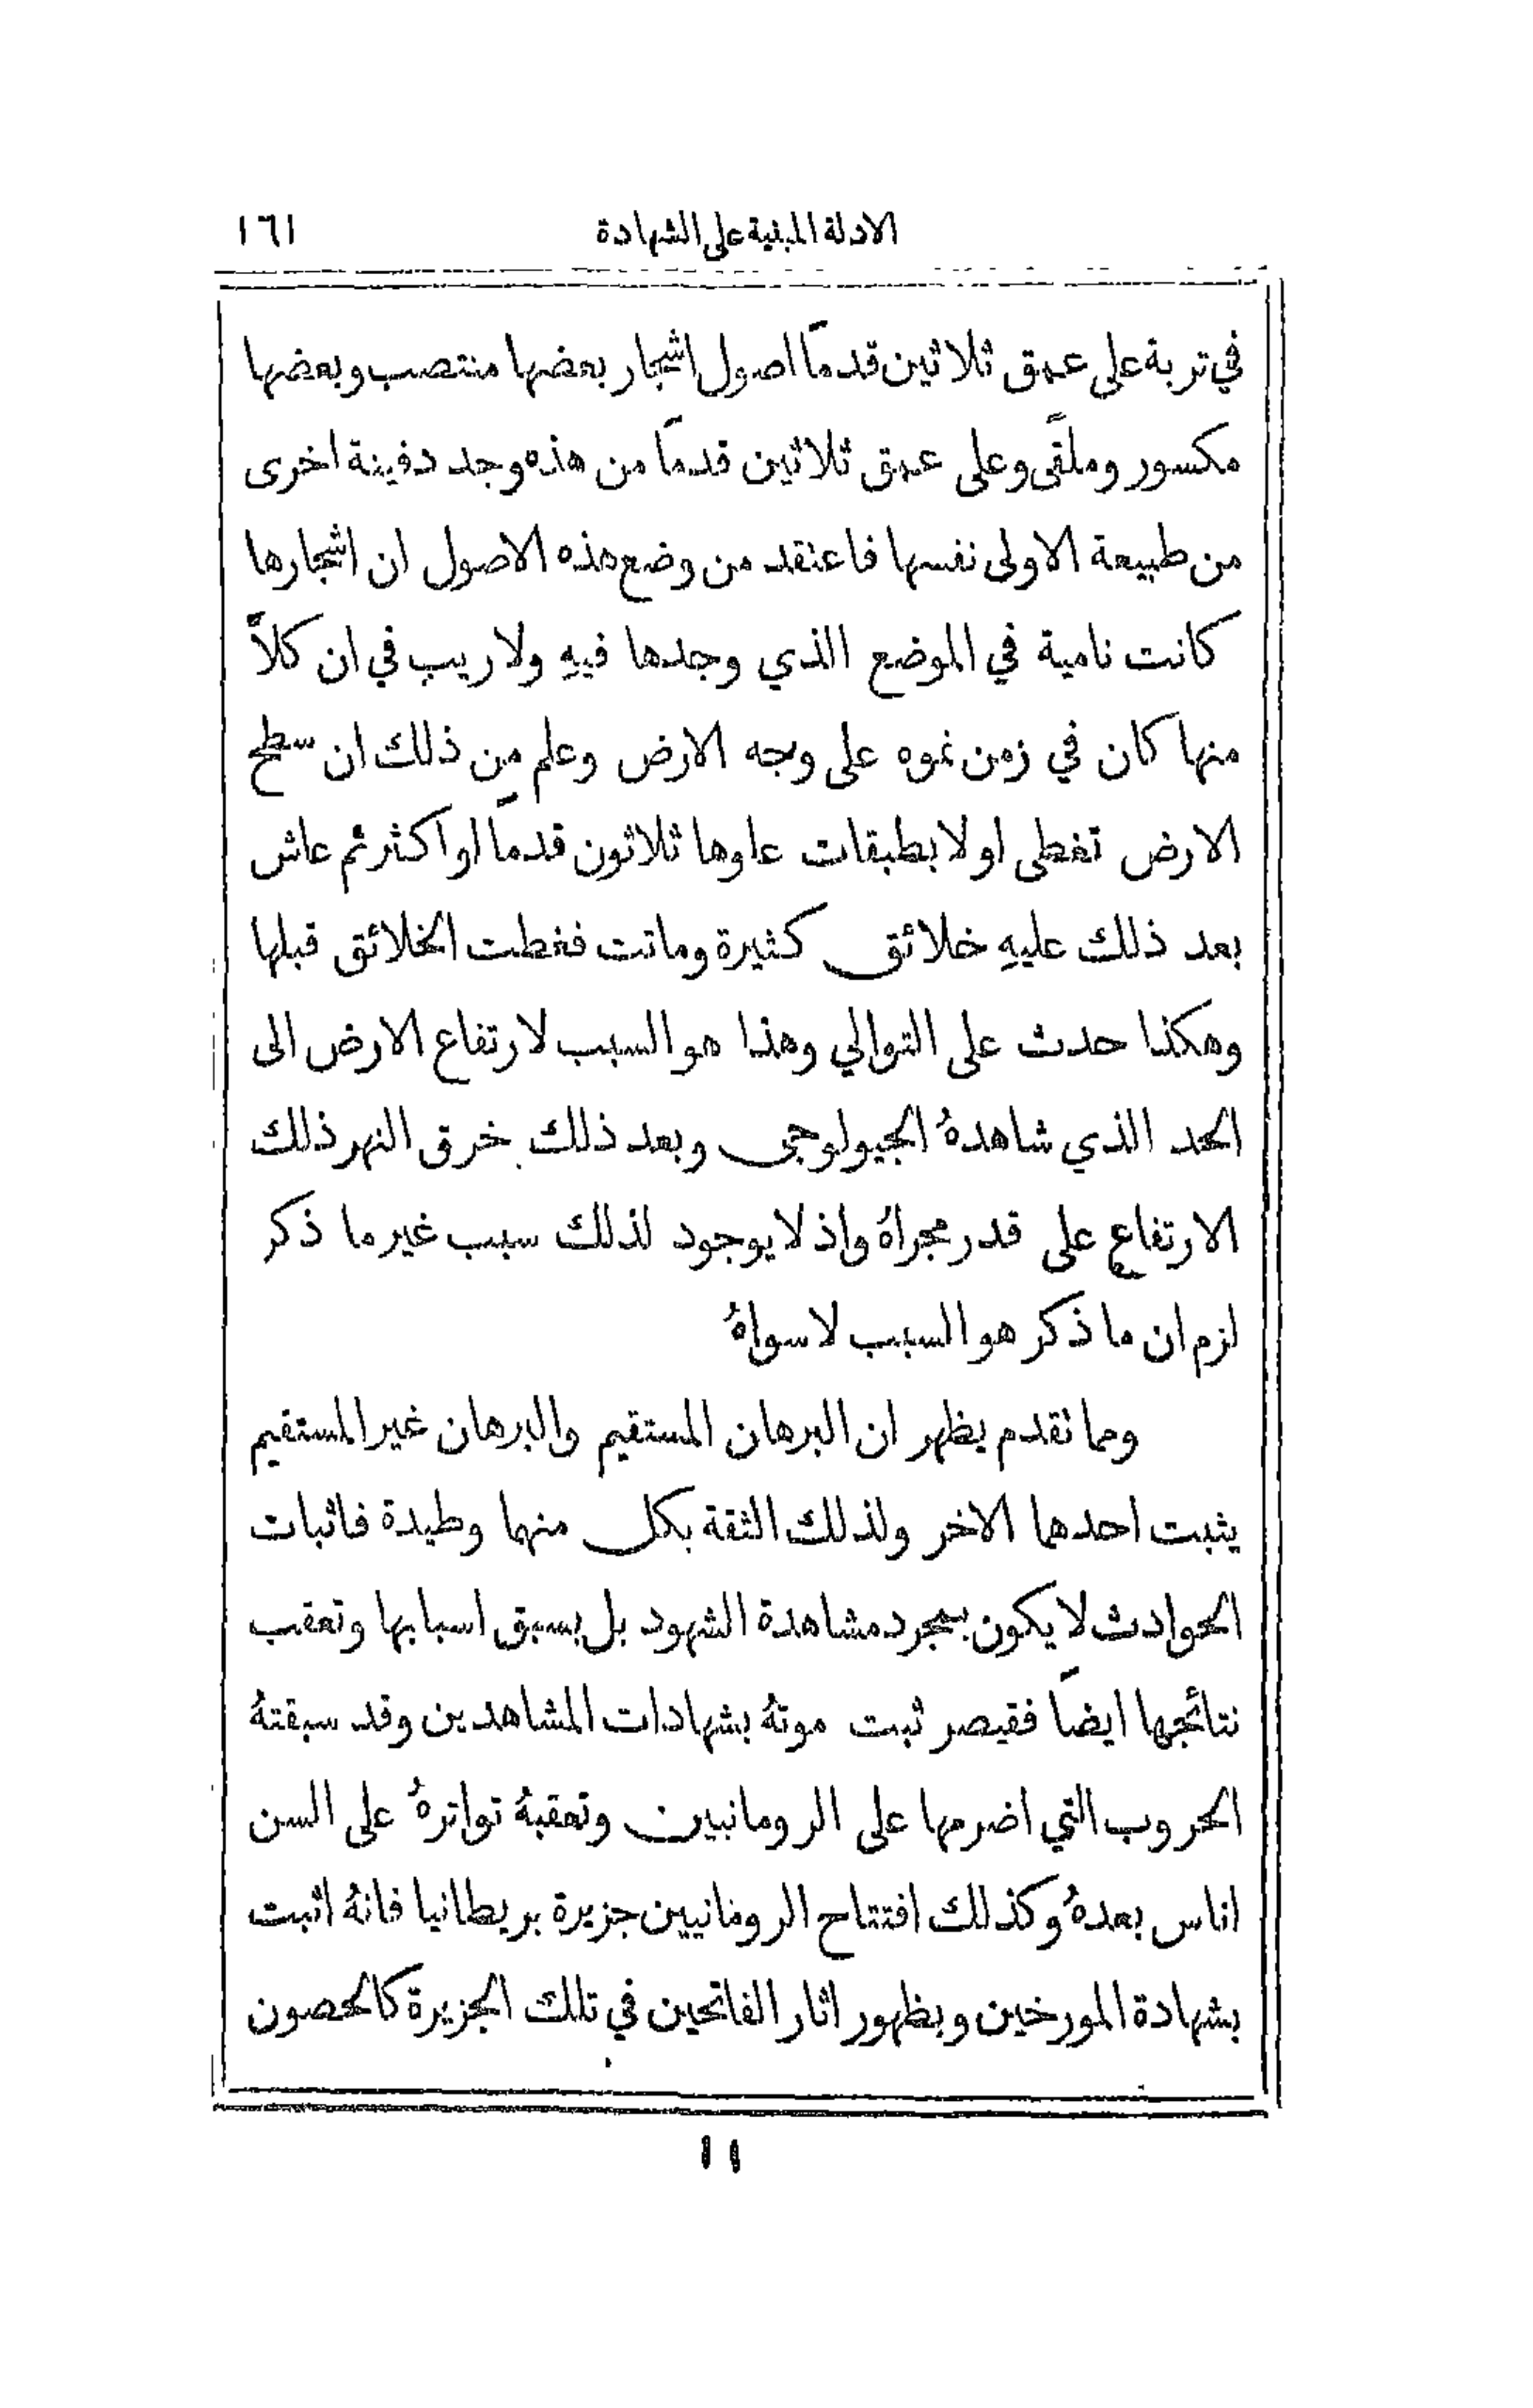 الادلة المبنية على الشهادة ١٦١
في تربة على عمق ثلاثين قدمًا اصول اشجار بعضها منتصب وبعضها
مكسور وملقًى وعلى عمق ثلاثين قدمًا من هذه وجد دفينة اخرى
من طبيعة الاولى نفسها فاعتقد من وضع هذه الاصول ان اشجارها
كانت نامية في الموضع الذي وجدها فيهِ ولا ريب في ان كلاًّ
منها كان في زمن نموه على وجه الارض وعلم من ذلك ان سطح
الارض تغطى اولا بطبقات علوها ثلاثون قدمًا او اكثر ثم عاش
بعد ذلك عليهِ خلائق كثيرة وماتت فغطت الخلائق قبلها
وهكذا حدث على التوالي وهذا هو السبب لارتفاع الارض الى
الحد الذي شاهدهُ الجيولوجى وبعد ذلك خرق النهر ذلك
الارتفاع على قدر مجراهُ واذ لا يوجود لذلك سبب غير ما ذكر
لزم ان ما ذكر هو السبب لا سواهُ
ومما تقدم يظهر ان البرهان المستقيم والبرهان غير المستقيم
يثبت احدهما الاخر ولذلك الثقة بكل منهما وطيدة فاثبات
الحوادث لا يكون بمجرد مشاهدة الشهود بل بسبق اسبابها وتعقب
نتائجها ايضًا فقيصر ثبت موتهُ بشهادات المشاهدين وقد سبقتهُ
الحروب التي اضرمها على الرومانيين وتعقبهُ تواترهُ على السن
اناس بعدهُ وكذلك افتتاح الرومانيين جزيرة بريطانيا فانهُ اثبت
بشهادة المورخين وبظهور اثار الفاتحين في تلك الجزيرة كالحصون
١١